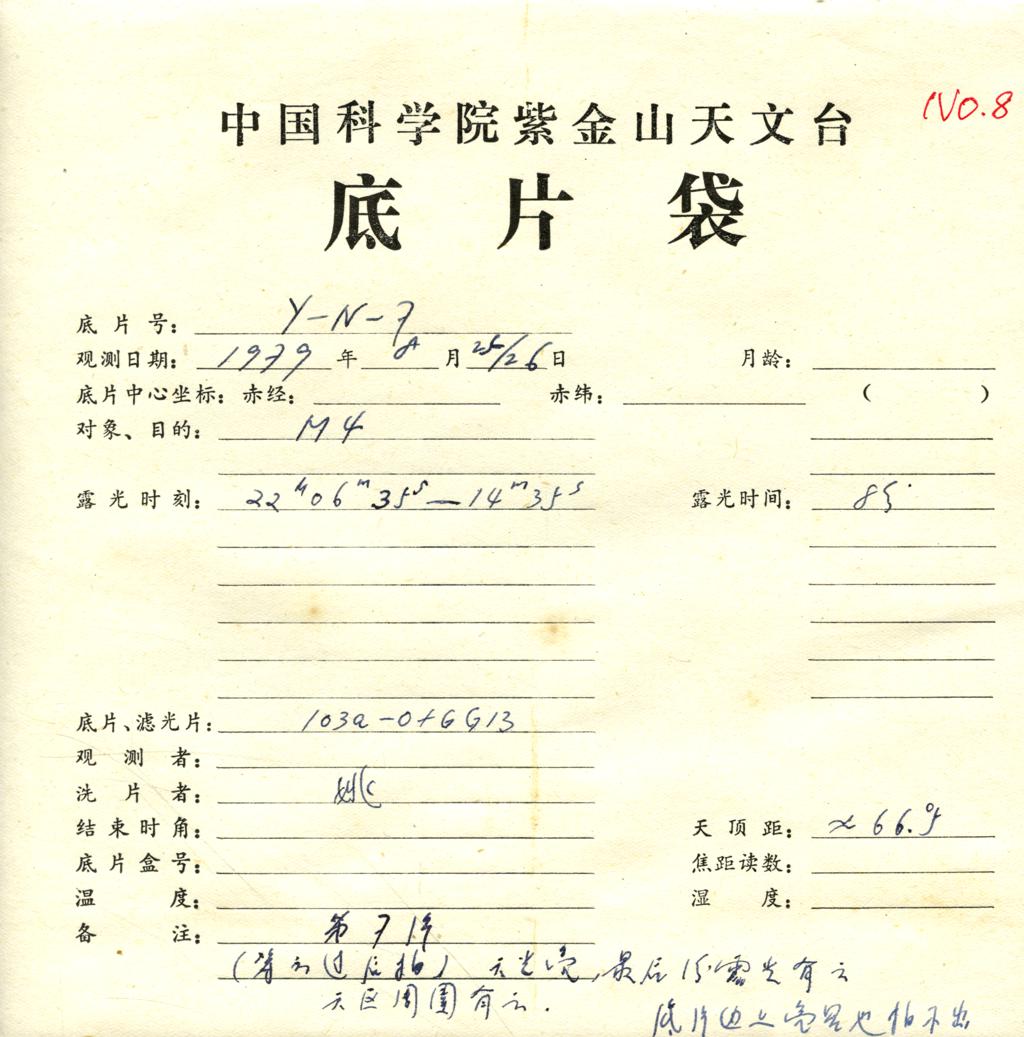 NO.8
中国科学院紫金山天文台
底片袋
底片号: Y-N-7
观测日期: 1979 年 8 月 25/26 日 月龄:
底片中心坐标: 赤经: 赤纬: ( )
对象、目的: M4
露光时刻: 22ʰ06ᵐ35ˢ—14ᵐ35ˢ 露光时间: 8分
底片、滤光片: 103a-O+GG13
观测者:
洗片者: 姚
结束时角: 天顶距: ≈66.°5
底片盒号: 焦距读数:
温度: 湿度:
备注: 第7片
(过后拍) 天光亮,最后分露光有云
天区周围有云.
底片边上亮星也拍不出